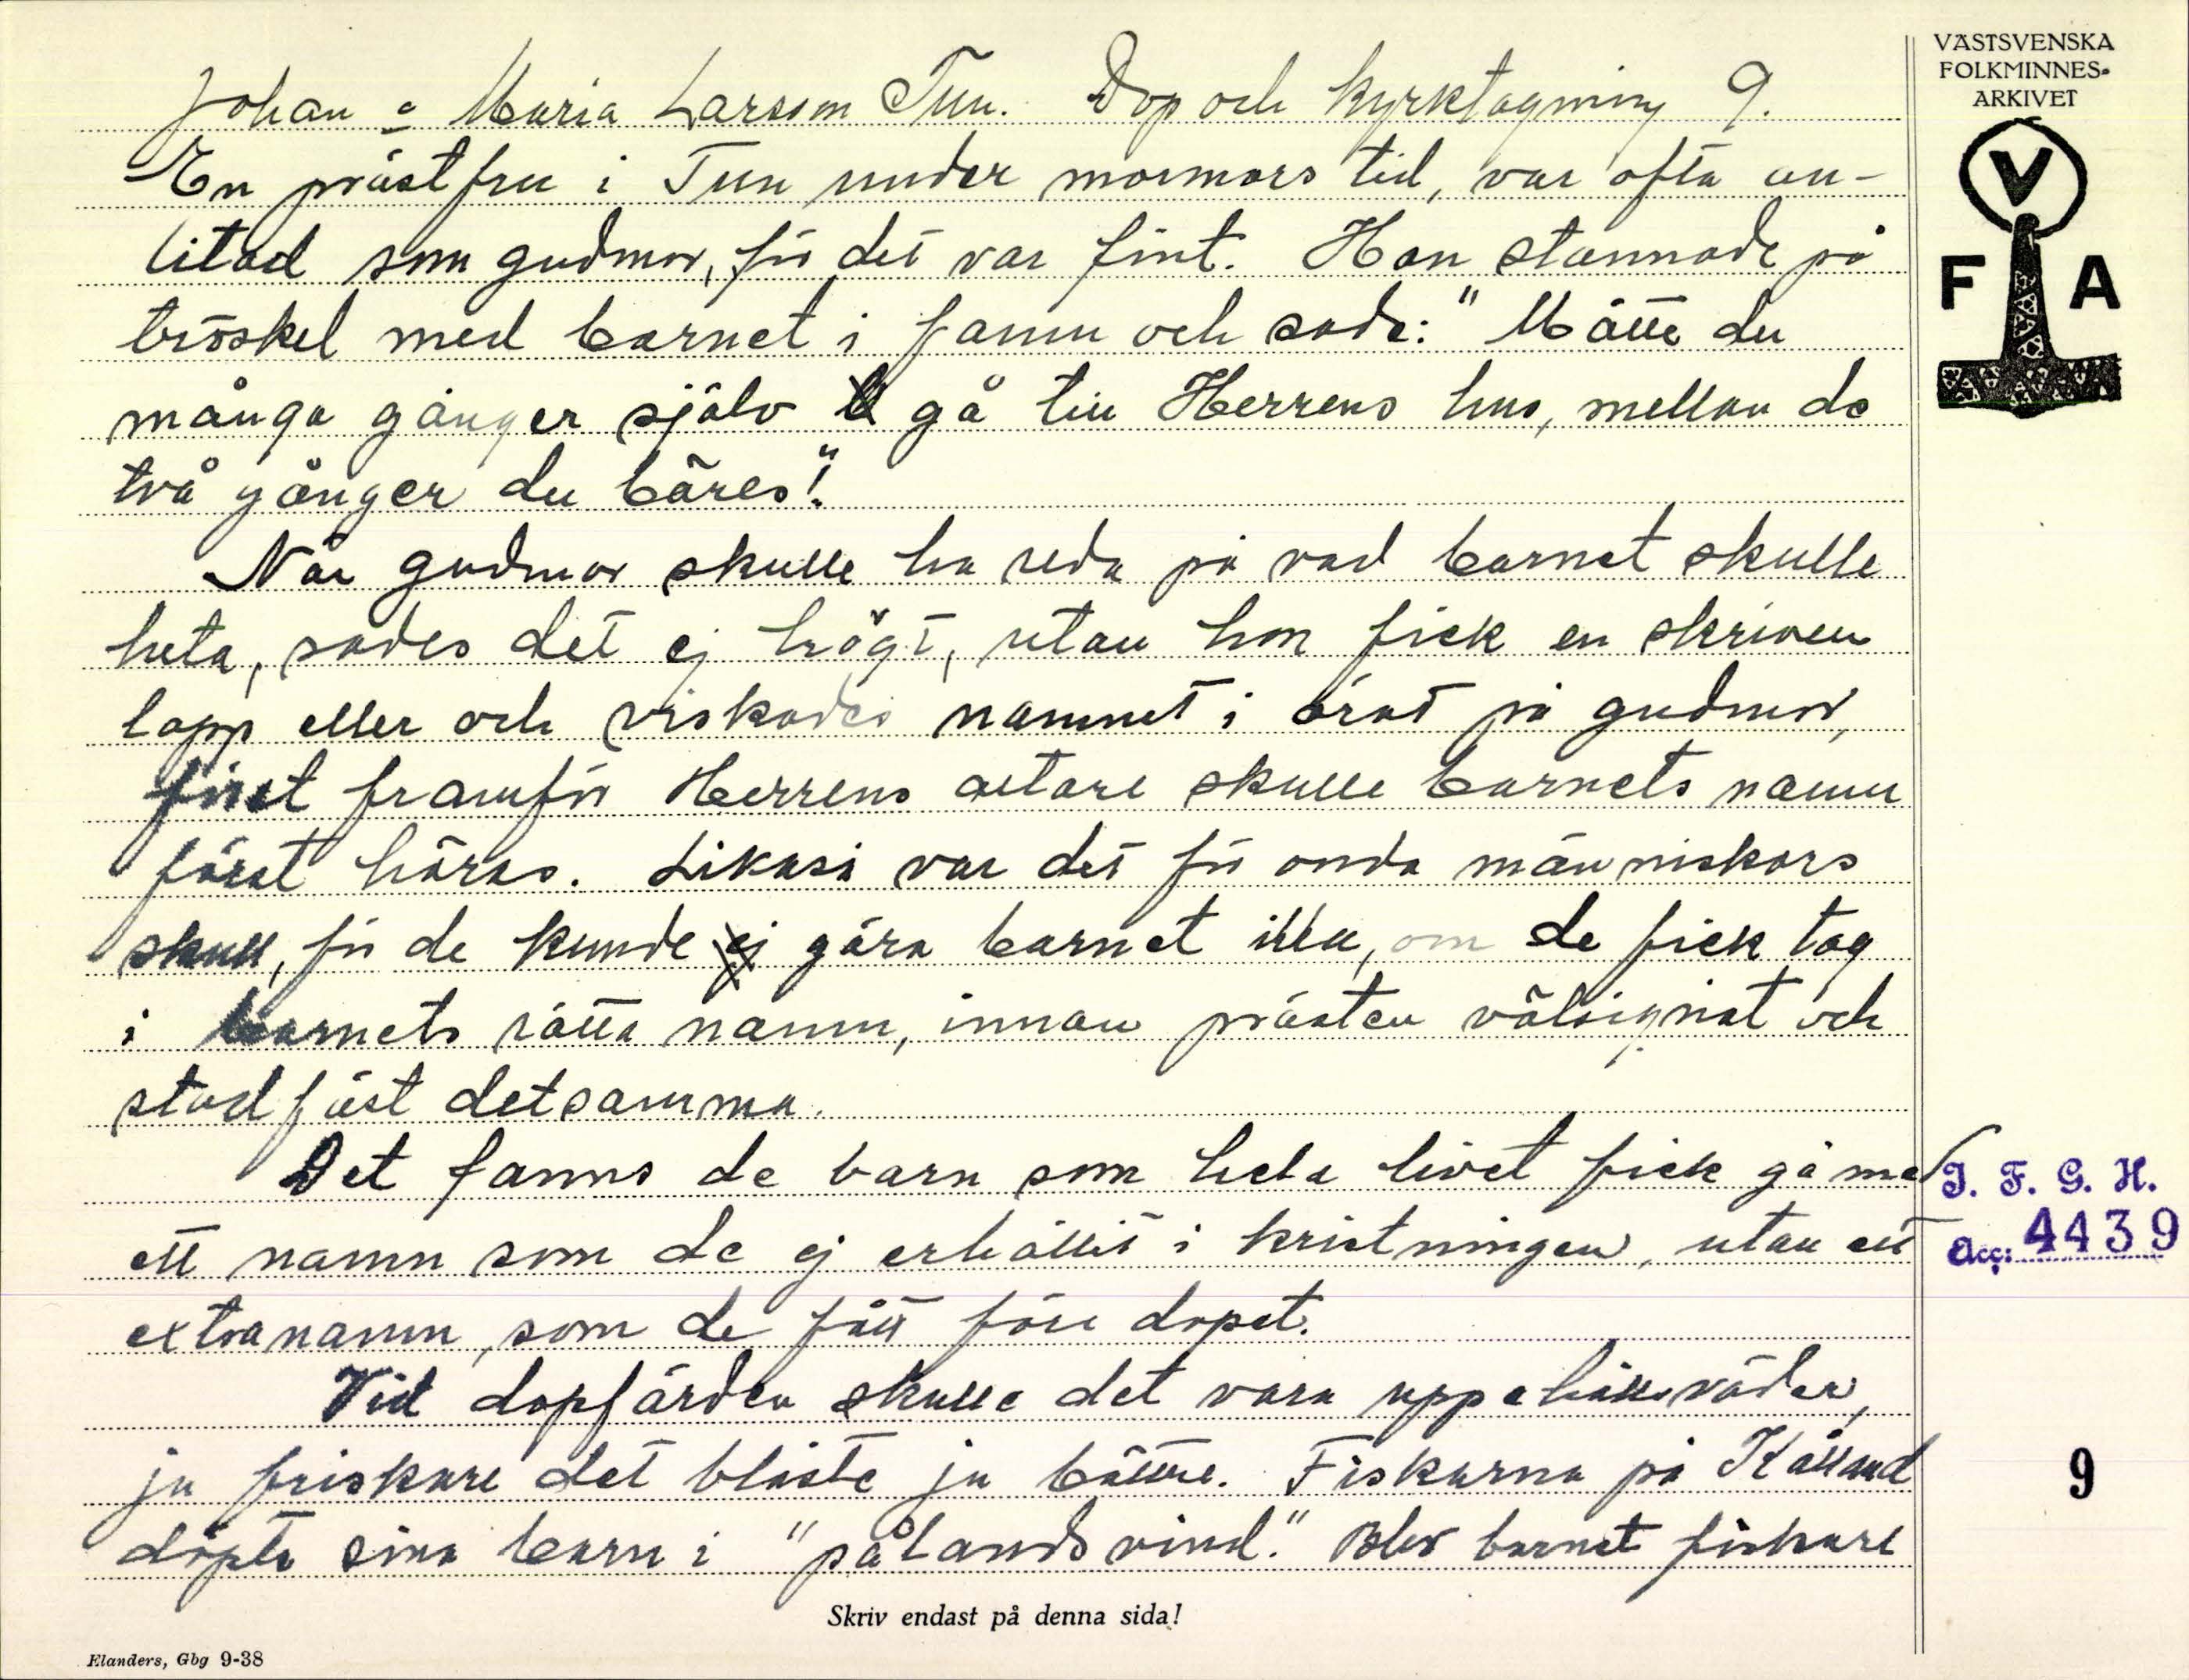 Johan o Maria Larsson Tun. Dop och kyrktagning 9.
En prästfru i Tun under mormors tid, var ofta an-
litad som gudmor, för det var fint. Hon stannade på
tröskel med barnet i famn och sade: "Måtte du
många gånger själv gå till Herrens hus, mellan de
två gånger du bäres!"
När gudmor skulle ha reda på vad barnet skulle
heta, sades det ej högt, utan hon fick en skriven
lapp eller och viskades namnet i örat på gudmor,
först framför Herrens altare skulle barnets namn
först höras. Likaså var det för onda människors
skull, för de kunde ej göra barnet illa, om de fick tag
i barnets rätta namn, innan prästen välsignat och
stadfäst detsamma.
Det fanns de barn som hela livet fick gå med
ett namn som de ej erhållit i kristningen, utan ett
extranamn, som de fått före dopet.
Vid dopfärden skulle det vara uppehållsväder,
ju friskare det blåste ju bättre. Fiskarna på Kålland
döpte sina barn i "pålandsvind." Blev barnet fiskare
VÄSTSVENSKA
FOLKMINNES-
ARKIVET
V
F A
I. F. G. H.
Acc: 4439
9
Skriv endast på denna sida!
Elanders, Gbg 9-38